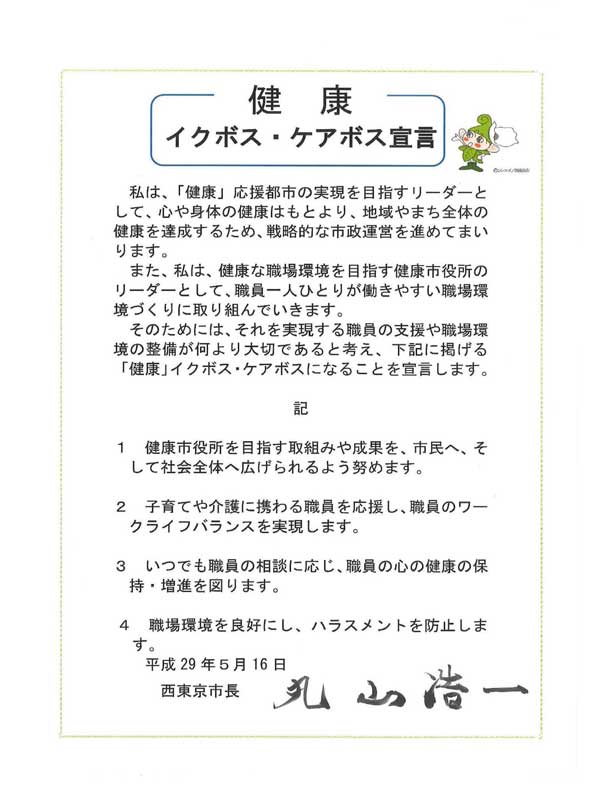 健　康
イクボス・ケアボス宣言
私は、「健康」応援都市の実現を目指すリーダーと
して、心や身体の健康はもとより、地域やまち全体の
健康を達成するため、戦略的な市政運営を進めてまい
ります。
また、私は、健康な職場環境を目指す健康市役所の
リーダーとして、職員一人ひとりが働きやすい職場環
境づくりに取り組んでいきます。
そのためには、それを実現する職員の支援や職場環
境の整備が何より大切であると考え、下記に掲げる
「健康」イクボス・ケアボスになることを宣言します。
記
１　健康市役所を目指す取組みや成果を、市民へ、そ
して社会全体へ広げられるよう努めます。
２　子育てや介護に携わる職員を応援し、職員のワー
クライフバランスを実現します。
３　いつでも職員の相談に応じ、職員の心の健康の保
持・増進を図ります。
４　職場環境を良好にし、ハラスメントを防止しま
す。
平成 29 年５月 16 日
西東京市長　丸山浩一